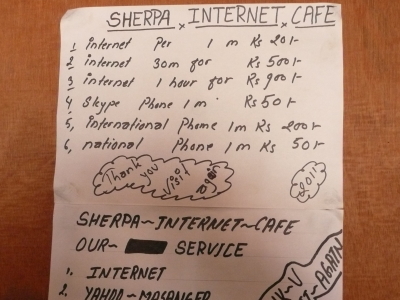 SHERPA x INTERNET x CAFE
1 internet Per 1 m Rs 20/-
2 internet 30m for Rs 500/-
3 internet 1 hour for Rs 900/-
4 Skype Phone 1 m Rs 50/-
5, International Phome 1m Rs 200/-
6, national Phone 1m Rs 50/-
Thank you visit again
2011
SHERPA~INTERNET~CAFE
OUR~ SERVICE
1. INTERNET
AGAIN
2. YAHOO~MASANGER